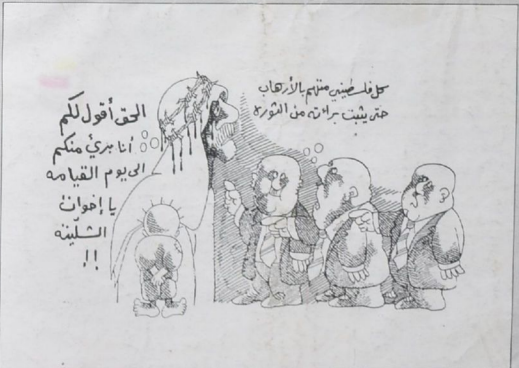 كل فلسطيني متهم بالأرهاب
حتى يثبت براءته من الثورة
الحق أقول لكم
أنا برئ منكم
الى يوم القيامه
يا إخوان
الشلّينه
!!